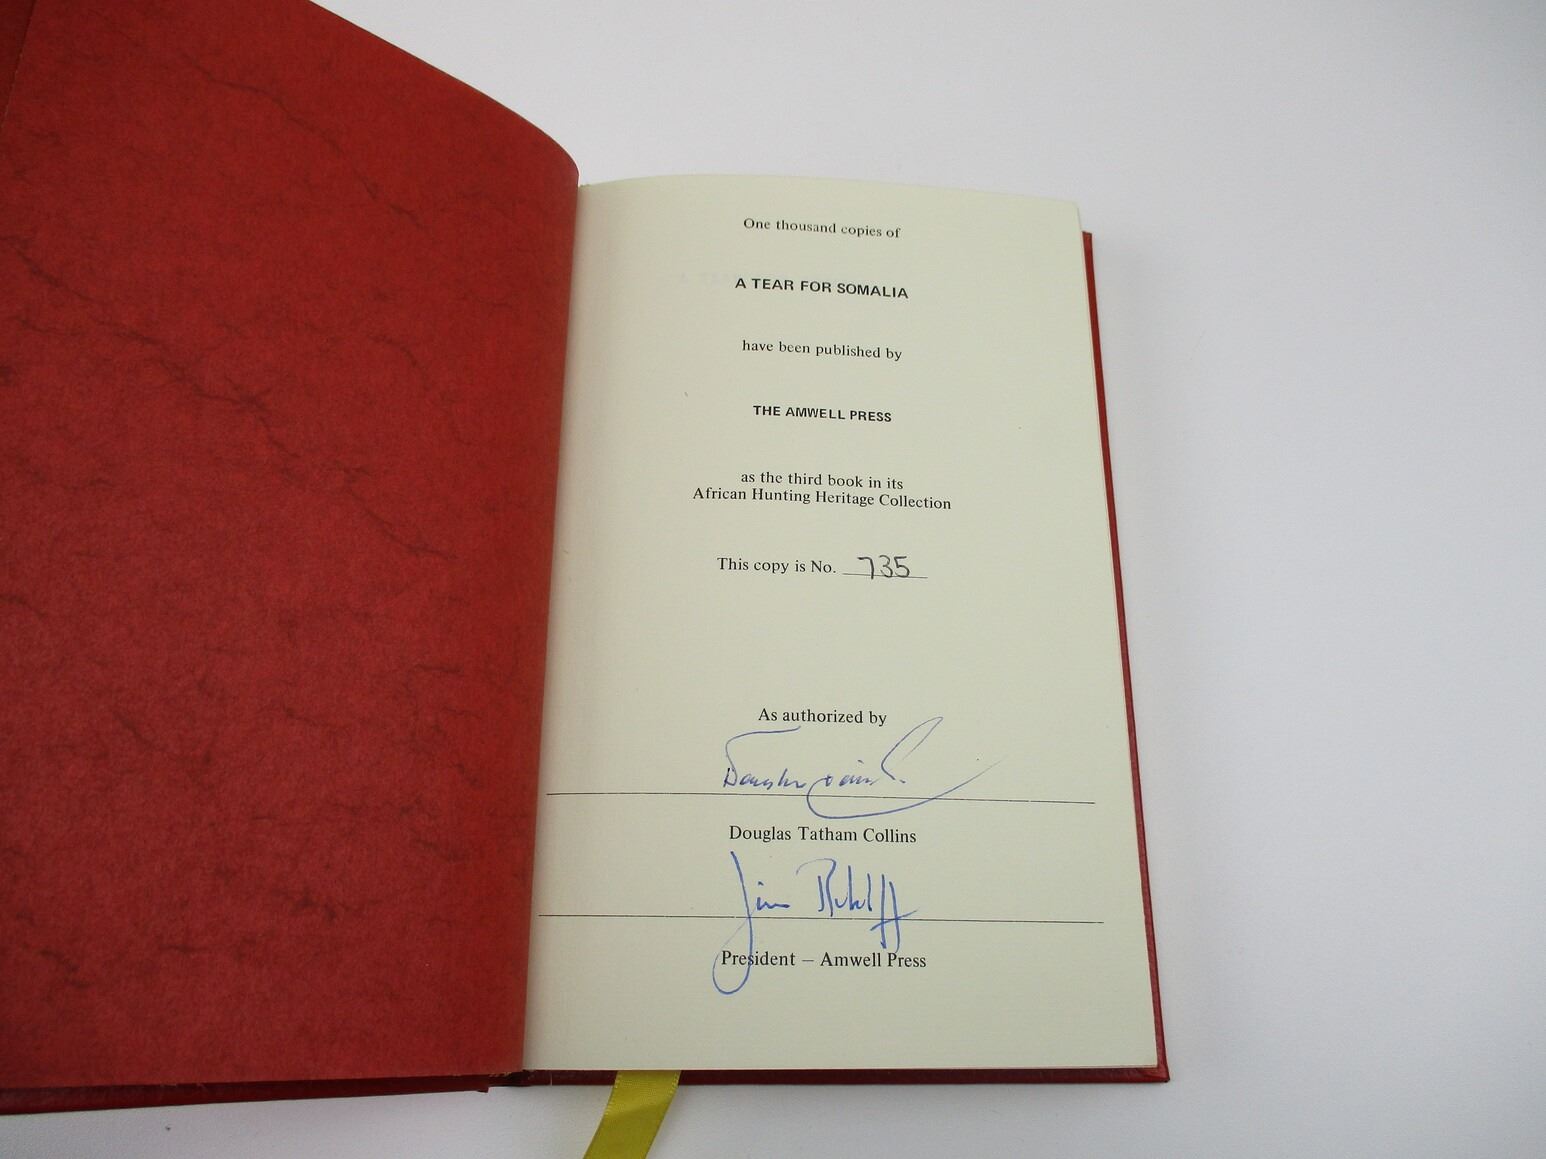 One thousand copies of
A TEAR FOR SOMALIA
have been published by
THE AMWELL PRESS
as the third book in its
African Hunting Heritage Collection
This copy is No. 735
As authorized by
Douglas Tatham Collins
Jim
President – Amwell Press